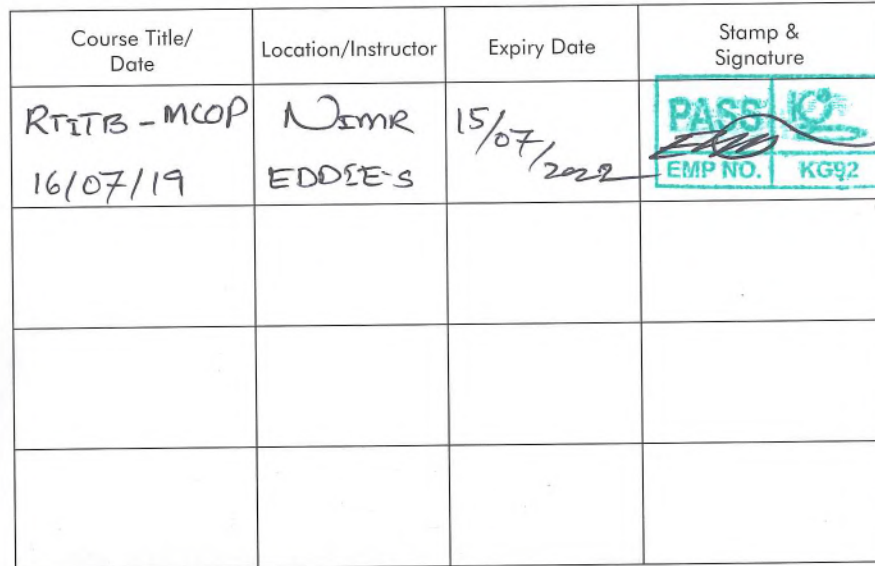 Course Title/
Date
Location/Instructor
Expiry Date
Stamp &
Signature
RTITB - MCOP
16/07/19
NIMR
EDDIE-S
15/07/2022
PASS
EMP NO. KG92